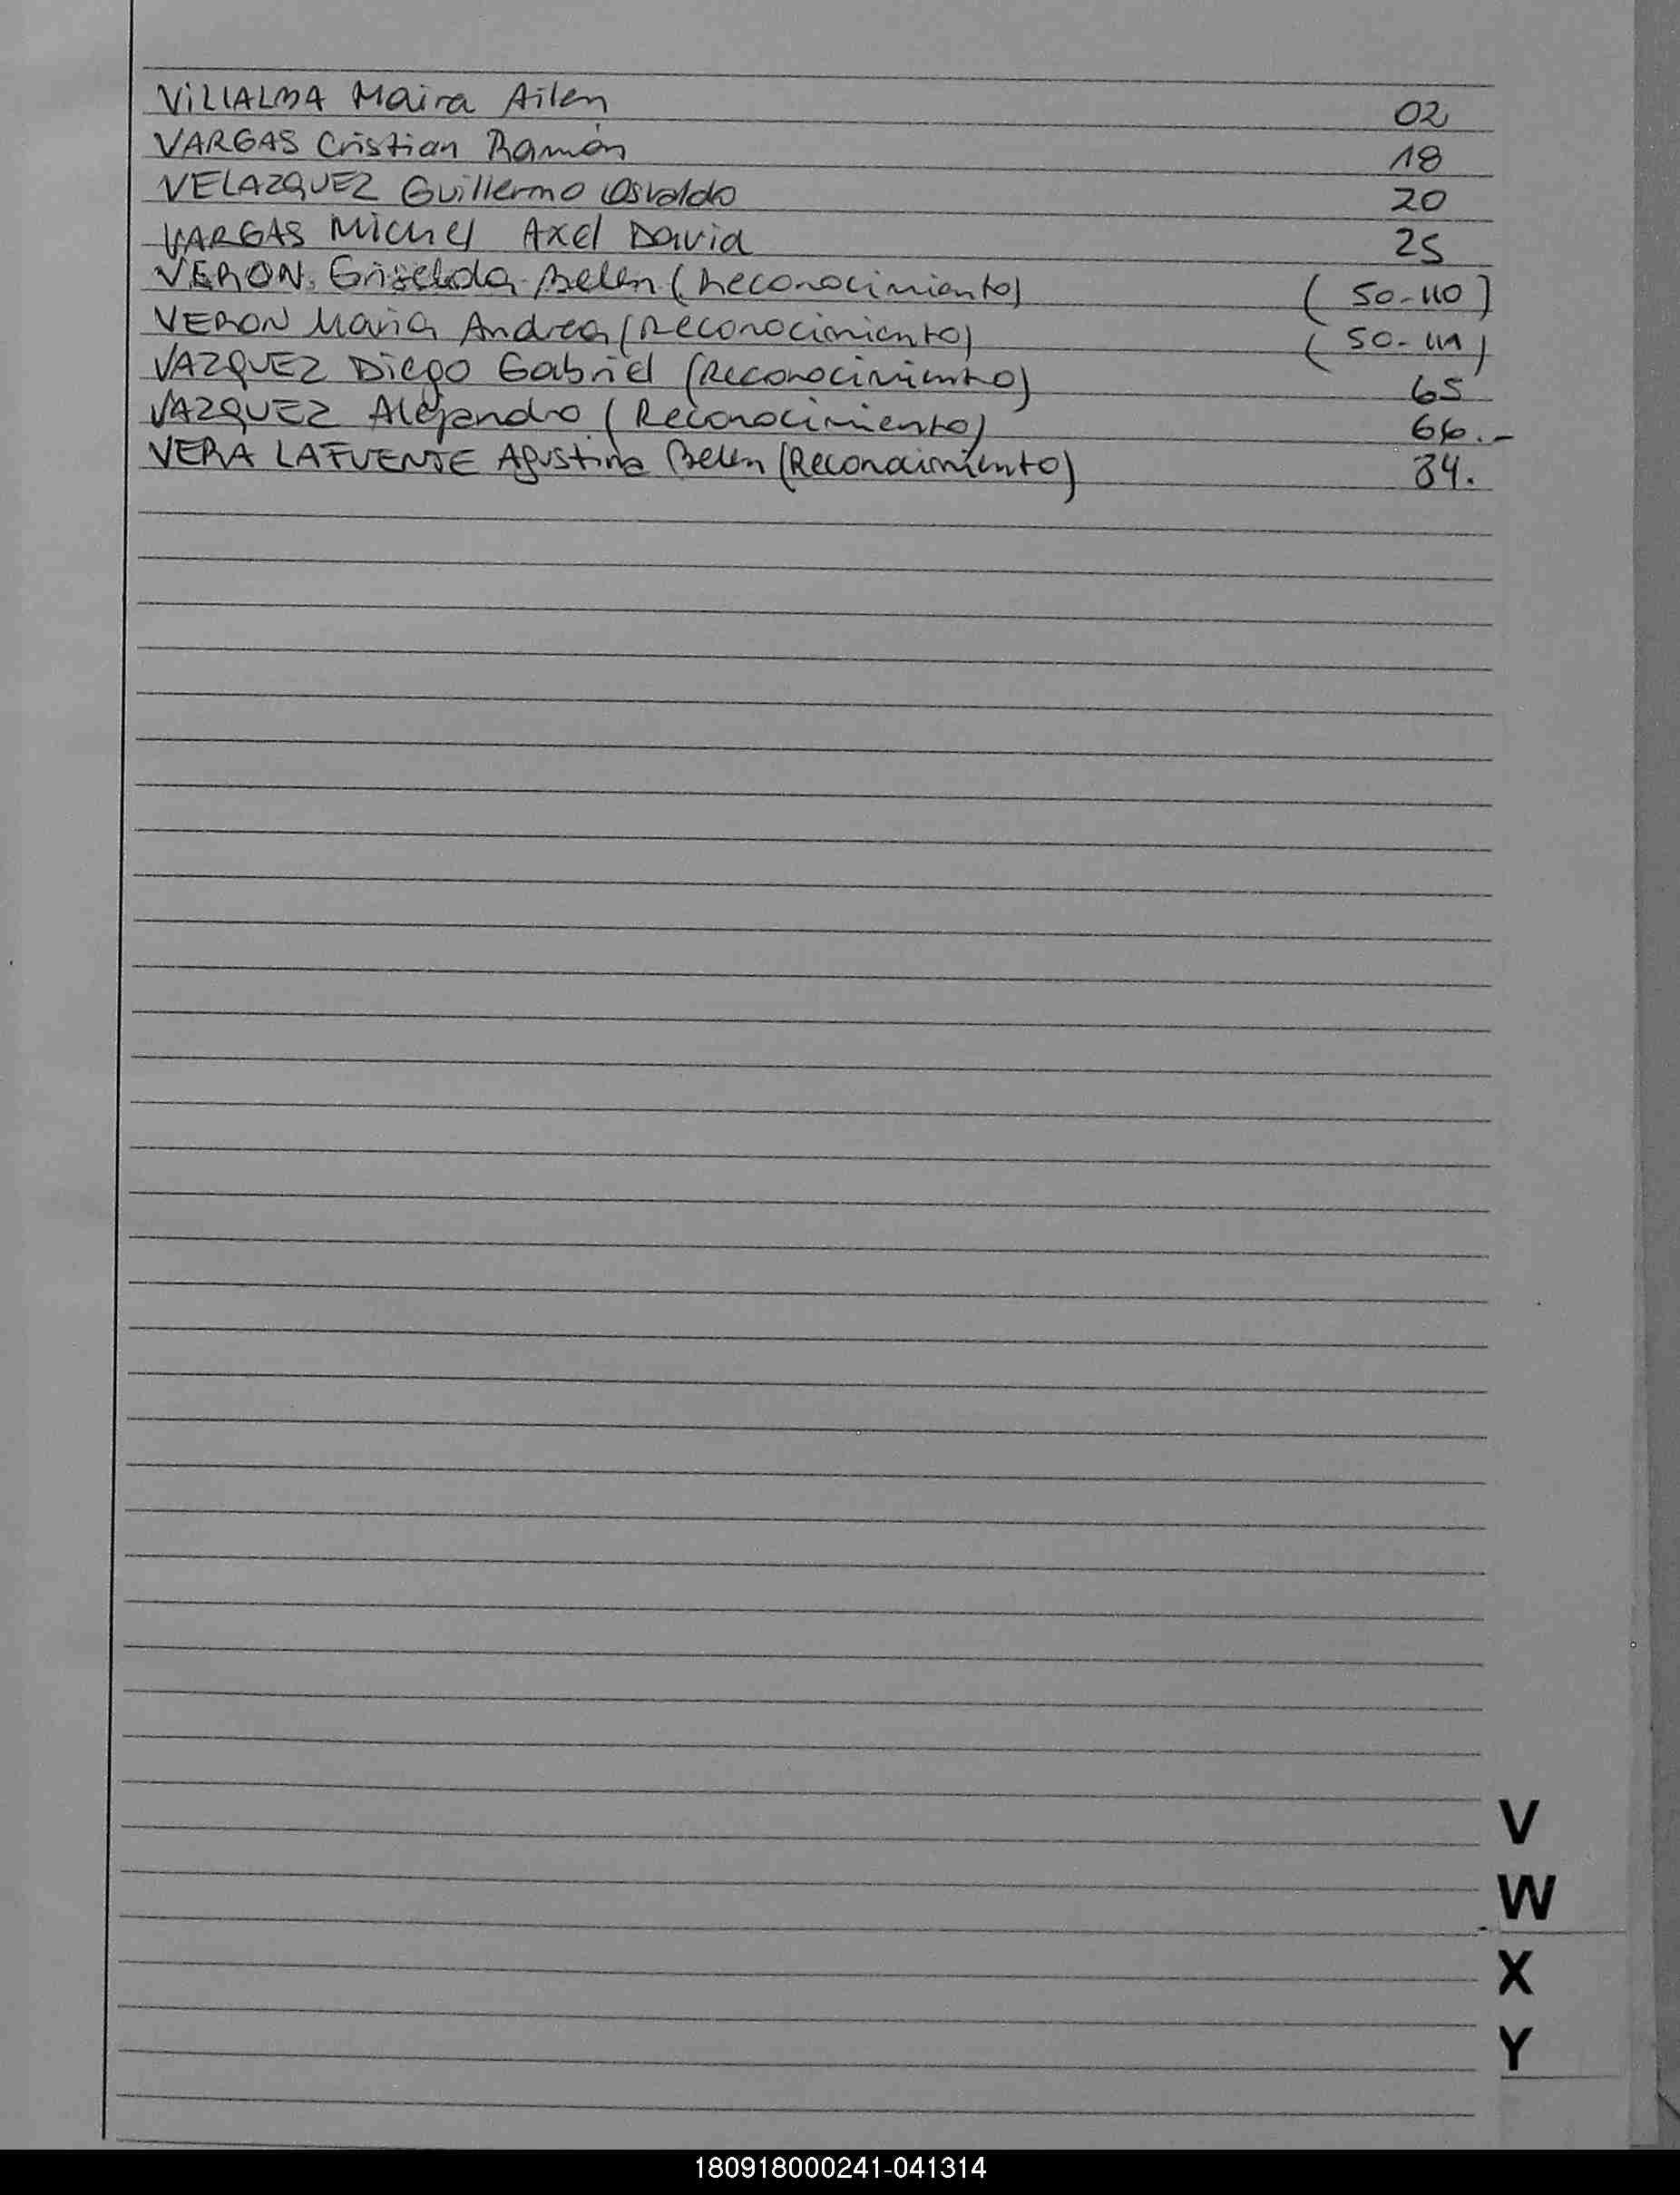 VILLALBA Maira Ailen 02
VARGAS Cristian Ramón 18
VELAZQUEZ Guillermo Osvaldo 20
VARGAS Michel Axel David 25
VERON Griselda Belen (Reconocimiento) (50-110)
VERON Maria Andrea (Reconocimiento) (50-111)
VAZQUEZ Diego Gabriel (Reconocimiento) 65
VAZQUEZ Alejandro (Reconocimiento) 66.-
VERA LAFUENTE Agustina Belen (Reconocimiento) 84.
V
W
X
Y
180918000241-041314